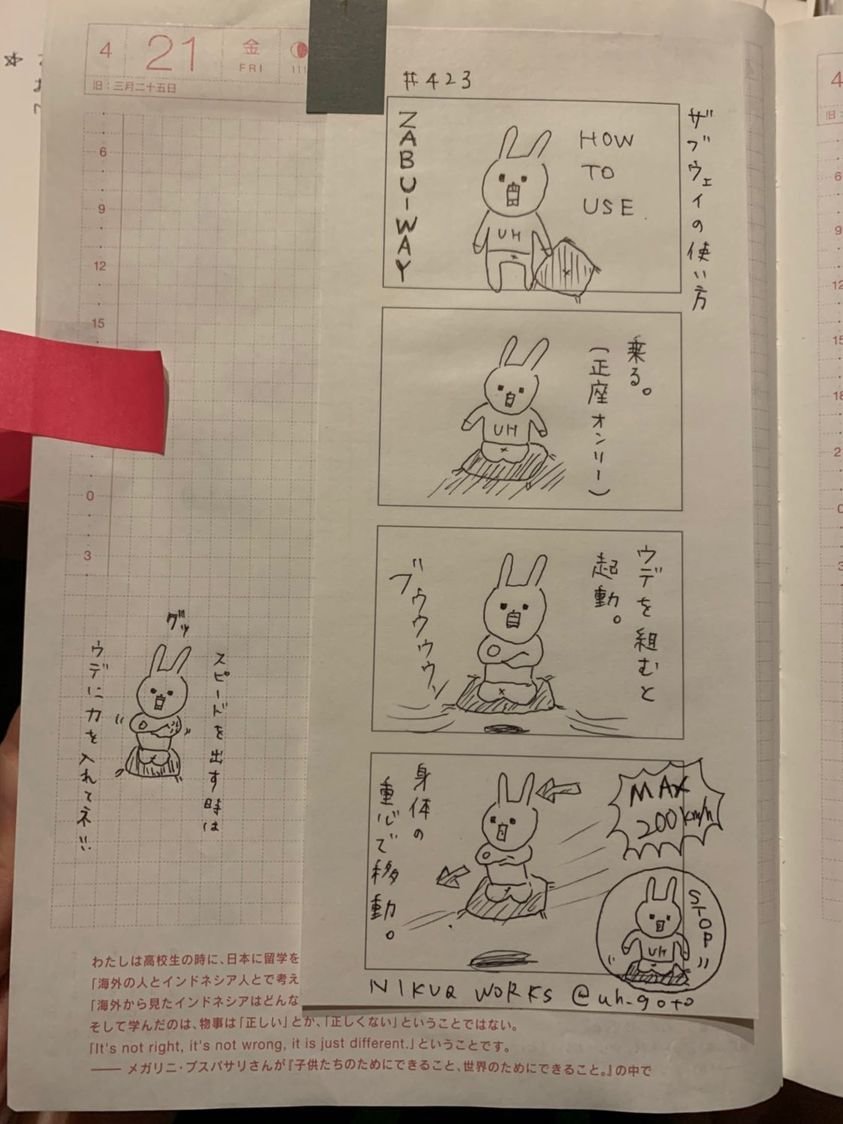 4
21
金
FRI
旧：三月二十五日
6
9
12
15
0
3
#423
ザブウェイの使い方
ZABUーWAY
HOW
TO
USE
UH
乗る。
(正座オンリー)
UH
ウデを組むと
起動。
ブウウウウン
身体の
重心で移動。
MAX
200km/h
STOP
UH
NIKUQ WORKS @uh_goto
グッ
スピードを出す時は
ウデに力を入れてネ!!
わたしは高校生の時に、日本に留学を
「海外の人とインドネシア人とで考え
「海外から見たインドネシアはどんな
そして学んだのは、物事は「正しい」とか、「正しくない」ということではない。
「It's not right, it's not wrong, it is just different.」ということです。
—— メガリニ・プスパサリさんが『子供たちのためにできること、世界のためにできること。』の中で